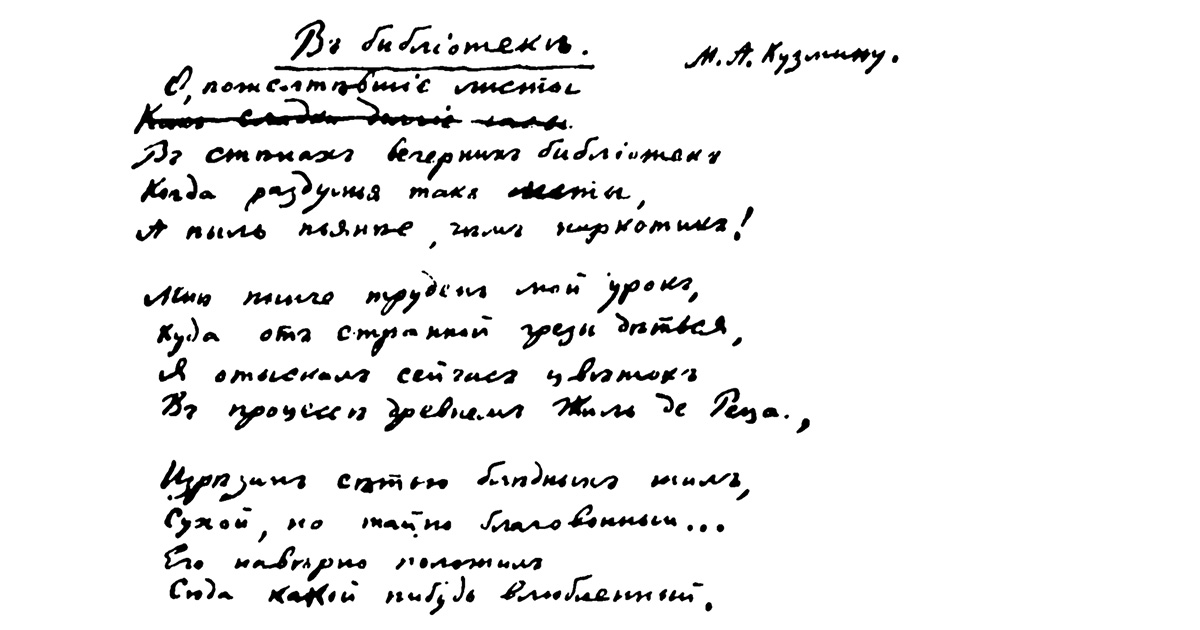 Въ библіотекѣ.
М. А. Кузмину.
О, пожелтѣвшіе листы
Въ стѣнахъ вечернихъ библіотекъ
Когда раздумья такъ чисты,
А пыль пьянѣе, чѣмъ наркотикъ!
Мнѣ нынче труденъ мой урокъ,
Куда отъ странной грезы дѣться,
Я отыскалъ сейчасъ цвѣтокъ
Въ процессѣ древнемъ Жиль де Реца.,
Изрѣзанъ сѣтью блѣдныхъ жилъ,
Сухой, но тайно благовонный...
Его навѣрно положилъ
Сюда какой нибудь влюбленный.